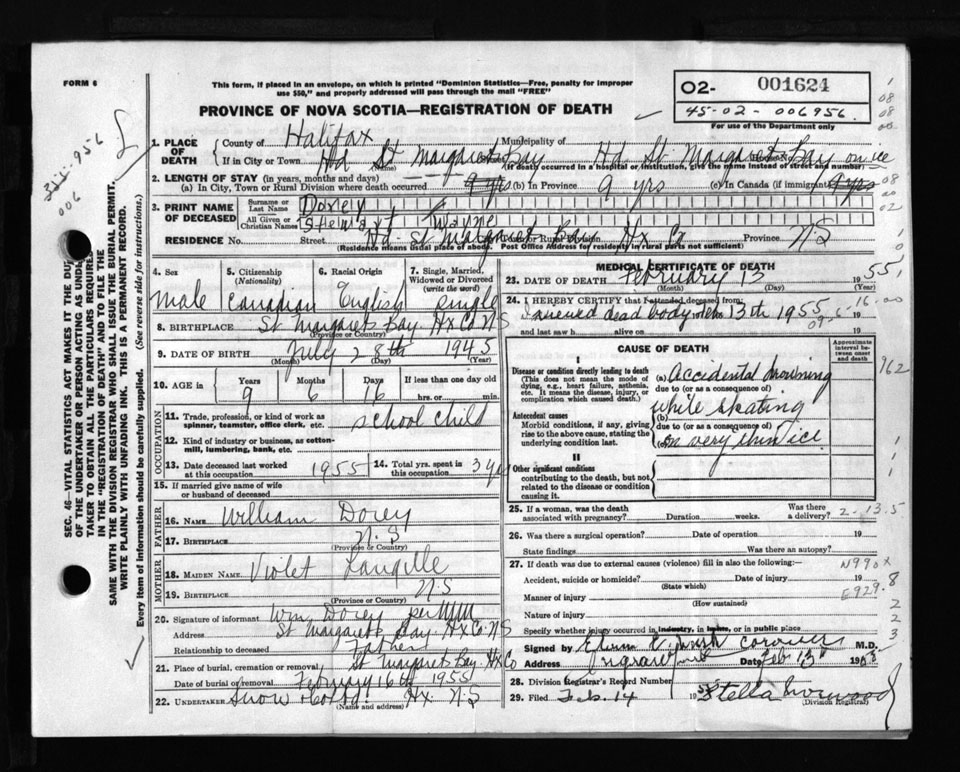 FORM 6
This form, if placed in an envelope, on which is printed "Dominion Statistics—Free, penalty for improper
use $50," and properly addressed will pass through the mail "FREE"
PROVINCE OF NOVA SCOTIA—REGISTRATION OF DEATH
02- 001624
45-02-006956
For use of the Department only
SEC. 46—VITAL STATISTICS ACT MAKES IT THE DUTY
OF THE UNDERTAKER OR PERSON ACTING AS UNDER
TAKER TO OBTAIN ALL THE PARTICULARS REQUIRED
IN THE "REGISTRATION OF DEATH" AND TO FILE THE
SAME WITH THE DIVISION REGISTRAR WHO SHALL ISSUE THE BURIAL PERMIT.
WRITE PLAINLY WITH UNFADING INK. THIS IS A PERMANENT RECORD.
Every item of information should be carefully supplied. (See reverse side for instructions.)
1. PLACE OF DEATH County of Halifax Municipality of
If in City or Town Hd St Margarets Bay Hd St Margarets Bay on ice
(Name) (If death occurred in a hospital or institution, give the name instead of street and number)
2. LENGTH OF STAY (in years, months and days)
(a) In City, Town or Rural Division where death occurred 9 yrs (b) In Province 9 yrs (c) In Canada (if immigrant) 9 yrs
3. PRINT NAME OF DECEASED Surname or Last Name Dorey
All Given or Christian Names Stewart Wayne
RESIDENCE No. Street Hd St Margaret Bay Hx Co Province N.S
(Residence means usual place of abode. Post Office Address for residents in rural parts not sufficient)
4. Sex 5. Citizenship (Nationality) 6. Racial Origin 7. Single, Married, Widowed or Divorced (write the word)
male Canadian English single
8. BIRTHPLACE St Margarets Bay Hx Co N S
(Province or Country)
9. DATE OF BIRTH July 28th 1945
(Month) (Day) (Year)
10. AGE in Years Months Days If less than one day old
9 6 16 hrs. or min.
OCCUPATION
11. Trade, profession, or kind of work as spinner, teamster, office clerk, etc. school child
12. Kind of industry or business, as cotton-mill, lumbering, bank, etc.
13. Date deceased last worked at this occupation 1955 14. Total yrs. spent in this occupation 3 yrs
15. If married give name of wife or husband of deceased
FATHER
16. NAME William Dorey
17. BIRTHPLACE N.S
(Province or Country)
MOTHER
18. MAIDEN NAME Violet Langille
19. BIRTHPLACE N.S
(Province or Country)
20. Signature of informant Wm Dorey per
Address St Margarets Bay Hx Co N S
Relationship to deceased Father
21. Place of burial, cremation or removal St Margarets Bay Hx Co
Date of burial or removal February 16th 1955
22. UNDERTAKER Snow Co Ltd. Hx. N.S
(Name and address)
MEDICAL CERTIFICATE OF DEATH
23. DATE OF DEATH February 13 1955
(Month) (Day) (Year)
24. I HEREBY CERTIFY that I attended deceased from:
I viewed dead body 13th 1955
and last saw h alive on 19
CAUSE OF DEATH
Approximate interval between onset and death
I
Disease or condition directly leading to death
(This does not mean the mode of dying, e.g., heart failure, asthenia, etc. It means the disease, injury, or complication which caused death.)
(a) Accidental drowning
due to (or as a consequence of)
while skating
Antecedent causes
Morbid conditions, if any, giving rise to the above cause, stating the underlying condition last.
(b)
due to (or as a consequence of)
(c) on very thin ice
II
Other significant conditions
contributing to the death, but not related to the disease or condition causing it.
25. If a woman, was the death associated with pregnancy? Duration weeks. Was there a delivery? 2-13.5
26. Was there a surgical operation? Date of operation 19
State findings Was there an autopsy?
27. If death was due to external causes (violence) fill in also the following:— N990X
Accident, suicide or homicide? Date of injury 19
(State which) E929.8
Manner of injury
(How sustained)
Nature of injury
Specify whether injury occurred in industry, in home, or in public place
Signed by coroner M.D.
Address Date Feb 13
28. Division Registrar's Record Number
29. Filed Feb. 14 1955 Stella Norwood
(Division Registrar)